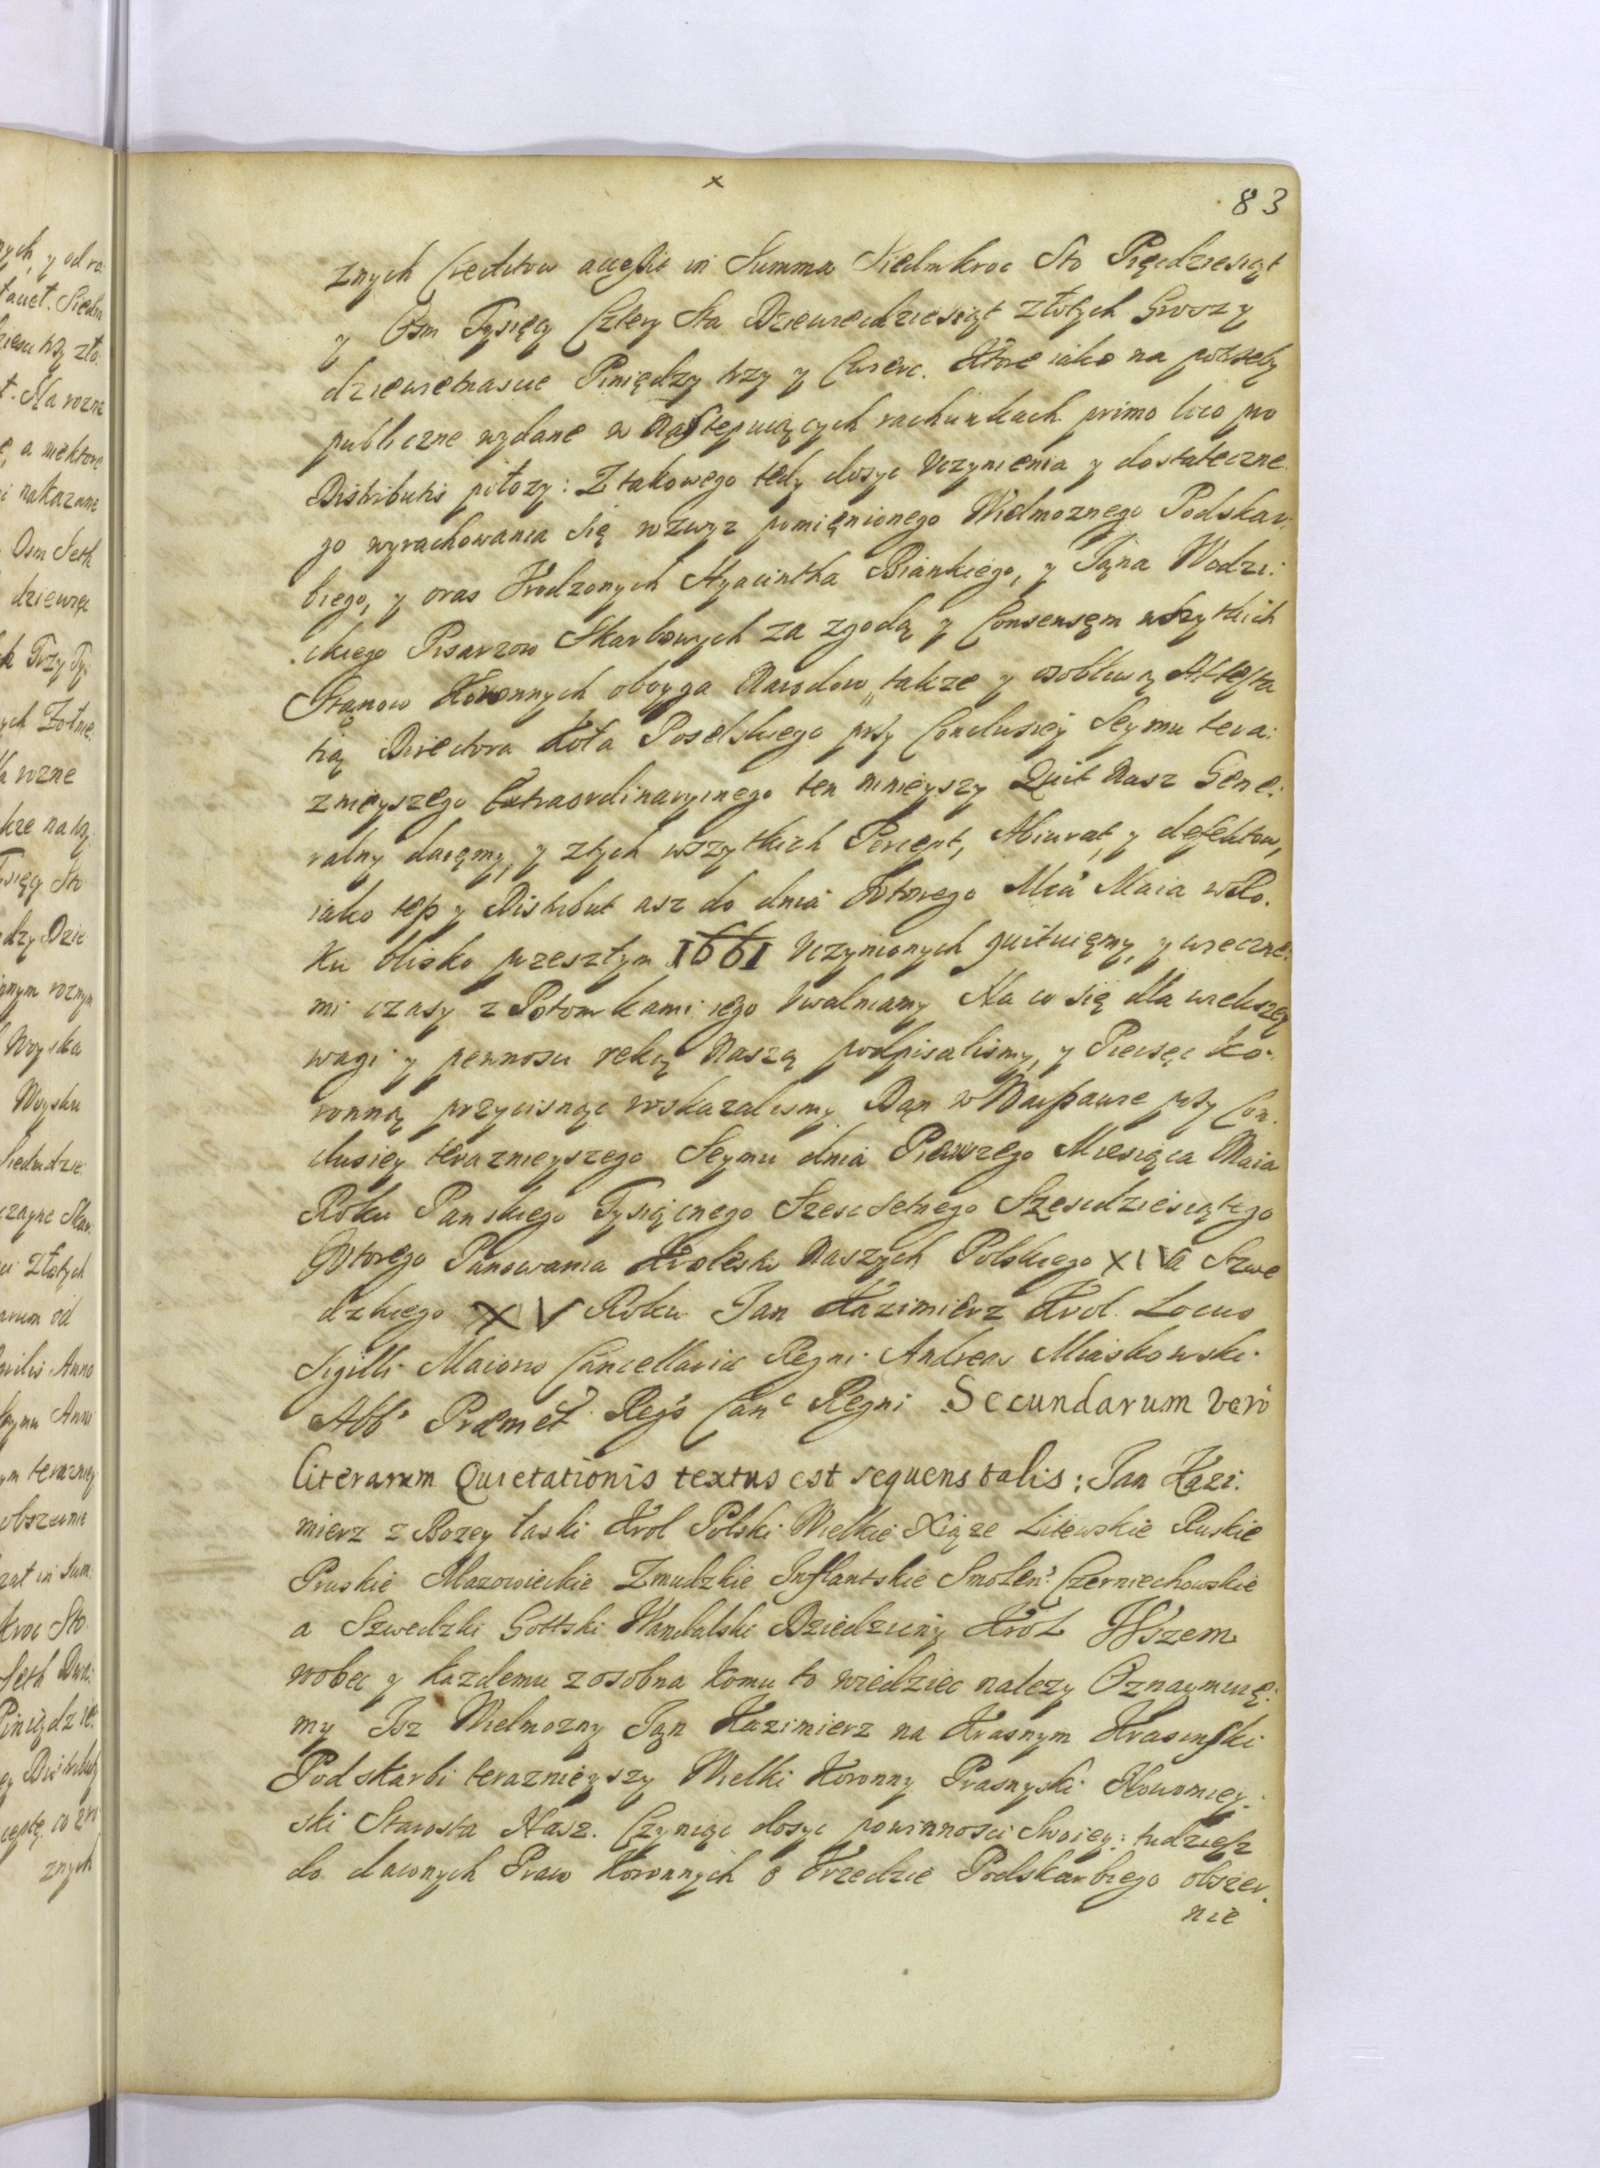 83
znych Creditow in Summa Siedmkroc Sto Pięcdziesiąt
y Osm Tysięcy Cztery Sta Dziewiecdziesiąt złotych Groszy
dziewietnascie Pieniędzy trzy y Cwierc. Ktore iako na potrzeby
publiczne wydane w Nastepuiących rachunkach primo loco pro
Distributis połozy: Z takowego tedy dosyc Vczynienia y dostateczne
go wyrachowania się wzwyz pomięnionego Wielmoznego Podskar:
biego, y oraz Vrodzonych Hyacintha Biankiego, y Jąna Wodzi:
ckiego Pisarzow Skarbowych za zgodą y Consensęm wszytkich
Stanow Koronnych oboyga Narodow, takze y osobliwą Attesta
tią Directora Koła Poselskiego przy Conclusiey Seymu tera:
znieyszego Extraordinaryinego ten ninieyszy Quit Nasz Gene:
ralny daięmy, y ztych wszytkich Percept, Abiurat, y defektow,
iako tesz y Distribut asz do dnia Wtorego Mca Maia w Ro.
ku blisko przeszłym 1661 Vczynionych quituięmy, y wieczne:
mi czasy z Potomkami iego Vwalniamy Na co się dla wiekszey
wagi y pewnosci reką Naszą podpisalismy, y Piecsęc Ko:
ronną przycisnąc roskazalismy. Dan w Warszawie przy Con:
clusiey terazneyszego Seymu dnia Pierwszego Miesiąca Maia
Roku Panskiego Tysiącnego Szescsetnego Szescdziesiątego
Wtorego Panowania Krolestw Naszych Polskiego XIV a Szwe
dzkiego XV Roku Jan Kazimierz Krol. Locus
Sigilli Maioris Cancellariæ Regni. Andreas Miaskowski
Abb. Præmet Regs Canc Regni Secundarum vero
literarum Quietationis textus est sequens talis: Jan Kązi:
mierz z Bozey łaski Krol Polski Wielkie Xiąze Litewskie Ruskie
Pruskie Mazowieckie Zmudzkie Inflantskie Smolen: Czerniechowskie
a Szwedzki Gottski Wandalski Dziedziczny Krol Wszem
wobec y kazdemu zosobna komu to wiedziec nalezy Oznaymuię:
my Isz Wielmozny Jąn Kazimierz na Krasnym Krasinski
Podskarbi teraznieyszy Wielki Koronny Prasnyski Nowomiey:
ski Starosta Nasz. Czyniąc dosyc powinnosci Swoiey: tudziesz
do dawnych Praw Koronnych o Vrzedzie Podskarbiego obszer:
nie